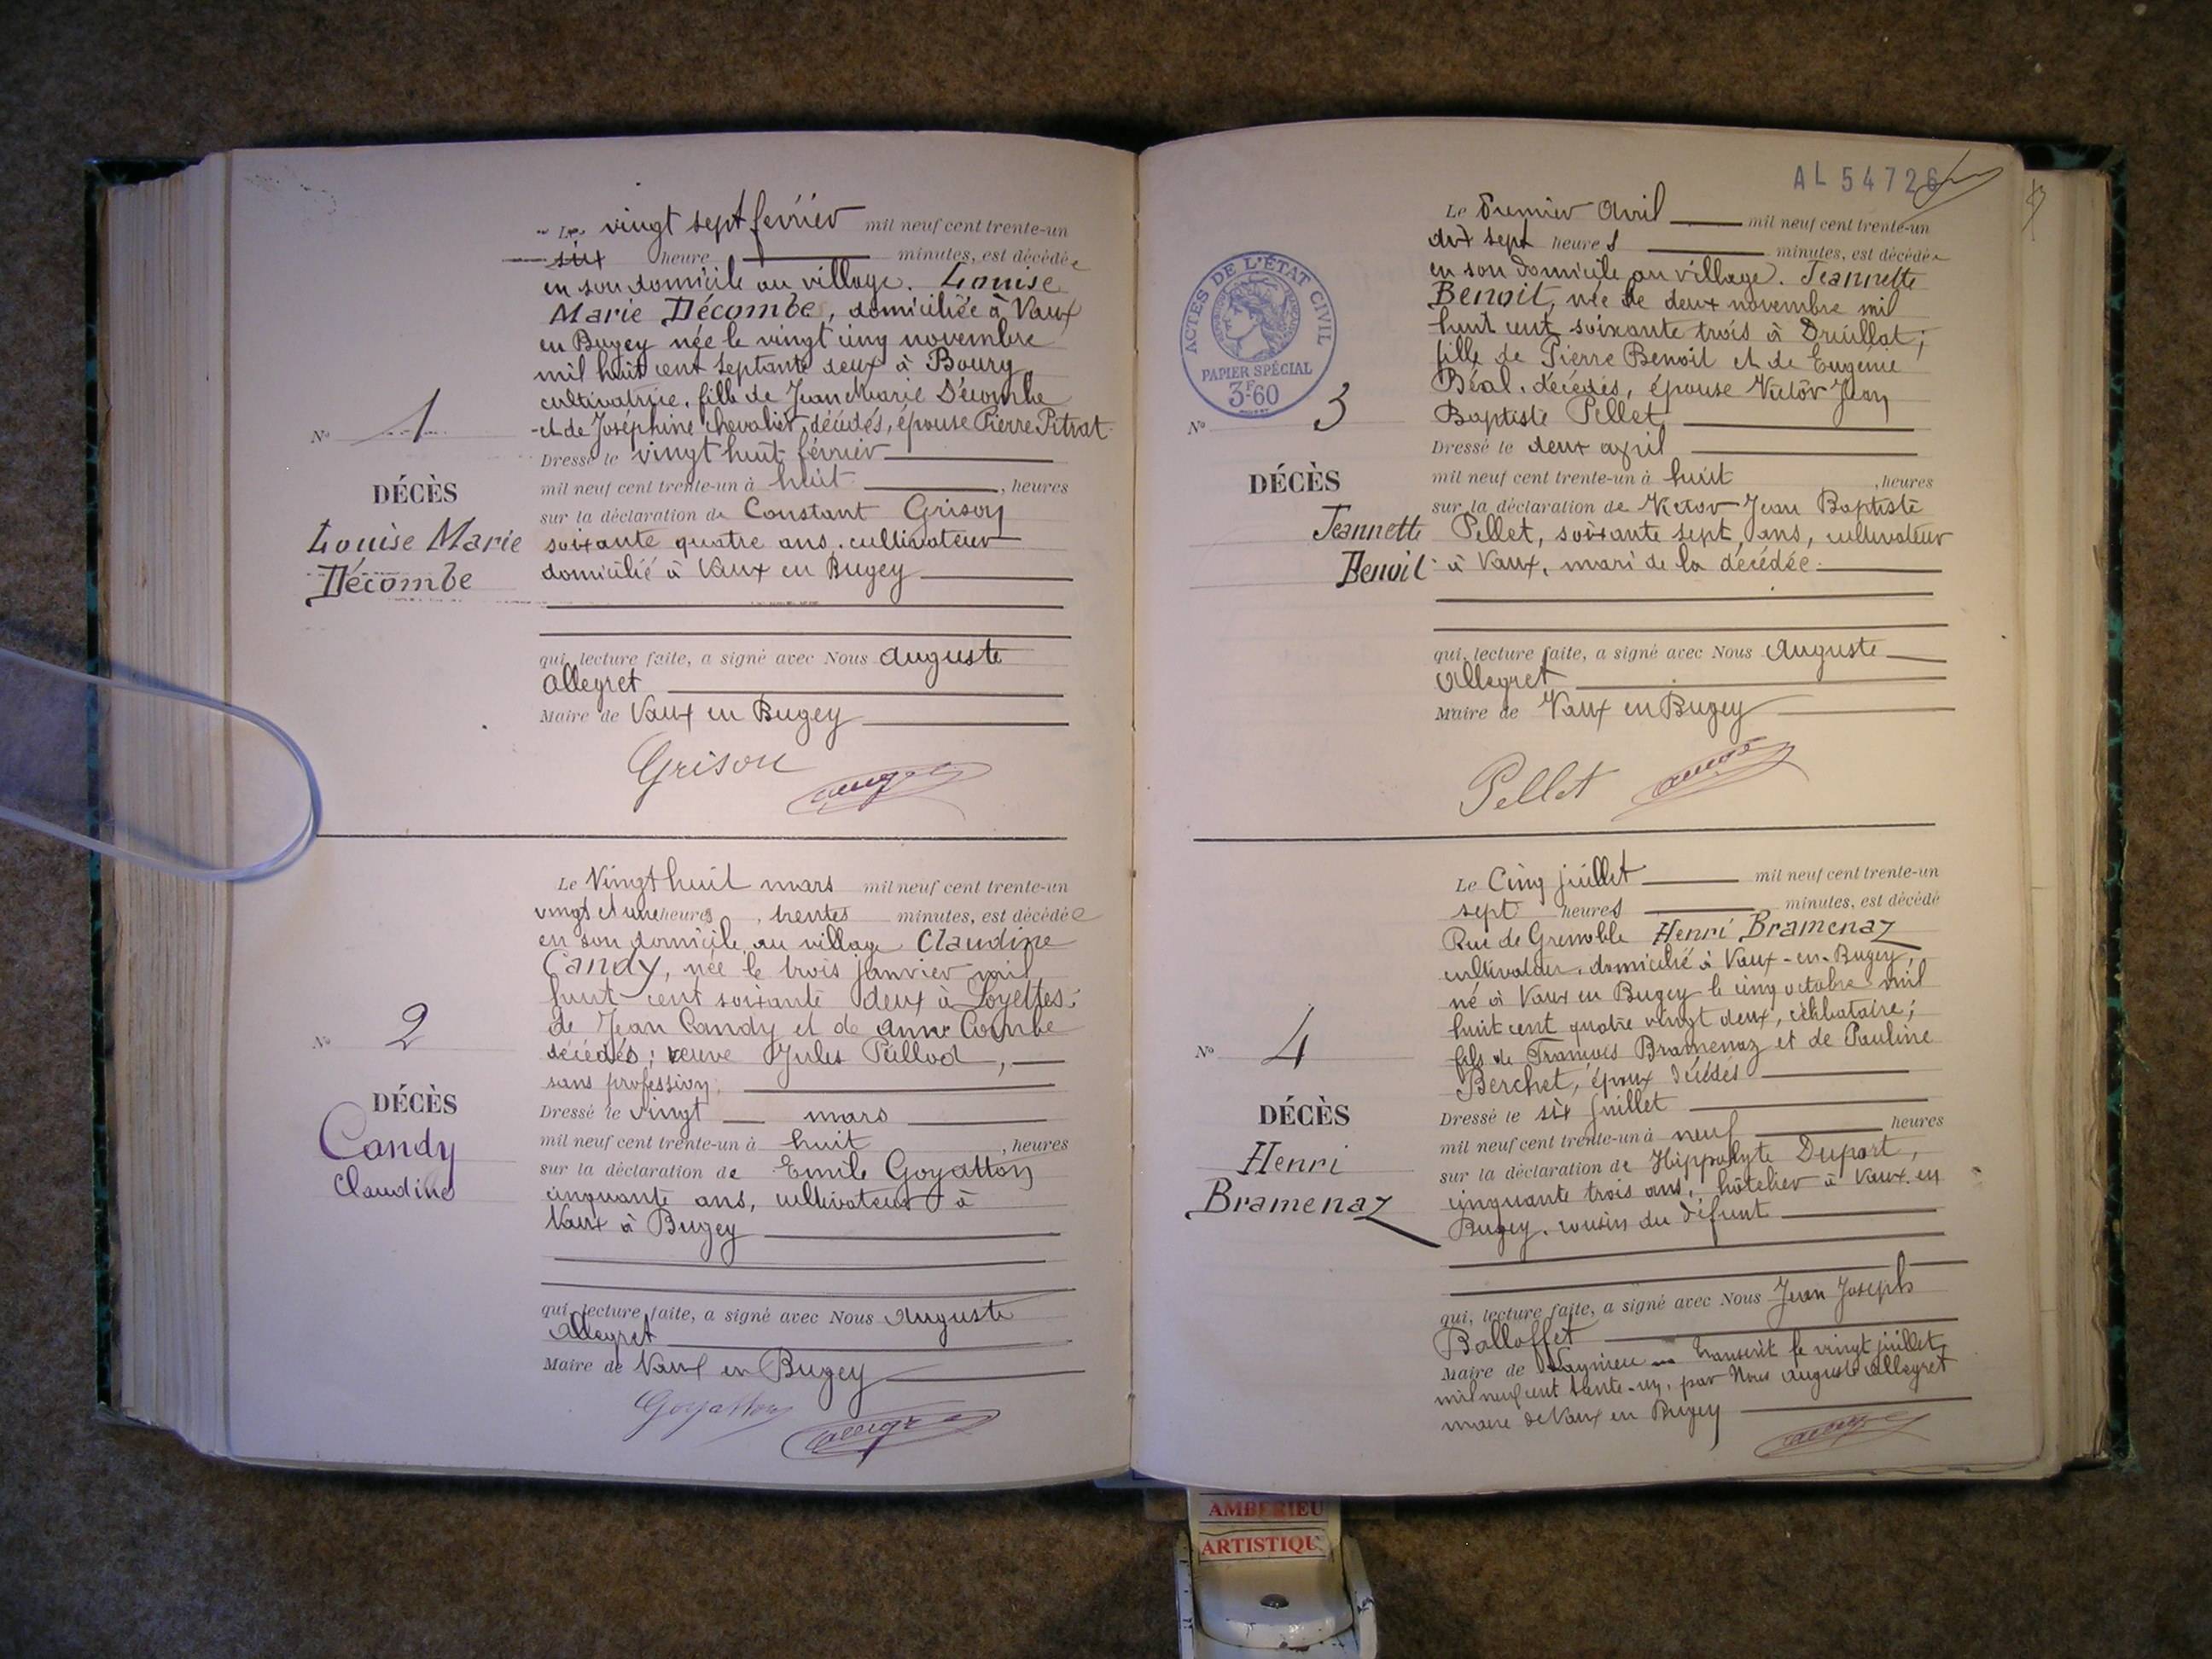 Le vingt sept février mil neuf cent trente-un
six heure minutes, est décédée
en son domicile au village. Louise
Marie Décombe, domiciliée à Vaux
en Bugey née le vingt cinq novembre
mil huit cent septante deux à Bourg,
cultivatrice, fille de Jean Marie Décombe
et de Joséphine Chevalier, décédés, épouse Pierre Pitrat
N° 1
Dressé le vingt huit février
DÉCÈS
mil neuf cent trente-un à huit, heures
sur la déclaration de Constant Grison
Louise Marie
soixante quatre ans, cultivateur
Décombe
domicilié à Vaux en Bugey
qui, lecture faite, a signé avec Nous Auguste
Allegret
Maire de Vaux en Bugey
Grison
Le Vingt huit mars mil neuf cent trente-un
vingt et une heures, trentes minutes, est décédée
en son domicile au village Claudine
Candy, née le trois janvier mil
huit cent soixante deux à Loyettes;
de Jean Candy et de Anne Combe
N° 2
décédés; veuve Jules
sans profession,
DÉCÈS
Dressé le vingt mars
Candy
mil neuf cent trente-un à huit, heures
sur la déclaration de Emile Goyatton
Claudine
cinquante ans, cultivateur à
Vaux à Bugey
qui, lecture faite, a signé avec Nous Auguste
Allegret
Maire de Vaux en Bugey
Goyatton
AL 54726
Le Premier Avril mil neuf cent trente-un
dix sept heures minutes, est décédée
en son domicile au village. Jeannette
Benoit, née le deux novembre mil
huit cent soixante trois à Druillat;
fille de Pierre Benoit et de Eugénie
Béal, décédés, épouse Victor Jean
Baptiste Pellet
ACTES DE L'ÉTAT CIVIL
PAPIER SPÉCIAL
3F60
N° 3
Dressé le deux avril
DÉCÈS
mil neuf cent trente-un à huit, heures
sur la déclaration de Victor Jean Baptiste
Jeannette
Pellet, soixante sept ans, cultivateur
Benoit
à Vaux, mari de la décédée
qui, lecture faite, a signé avec Nous Auguste
Allegret
Maire de Vaux en Bugey
Pellet
Le Cinq juillet mil neuf cent trente-un
sept heures minutes, est décédé
Rue de Grenoble Henri Bramenaz
cultivateur, domicilié à Vaux-en-Bugey,
né à Vaux en Bugey le cinq octobre mil
huit cent quatre vingt deux, célibataire;
fils de François Bramenaz et de Pauline
N° 4
Berchet, époux décédés
DÉCÈS
Dressé le six juillet
mil neuf cent trente-un à neuf heures
Henri
sur la déclaration de Hippolyte Duport,
Bramenaz
cinquante trois ans, hôtelier à Vaux en
Bugey, cousin du défunt
qui, lecture faite, a signé avec Nous Jean Joseph
Balloffet
Maire de Lagnieu Transcrit le vingt juillet
mil neuf cent trente-un, par Nous Auguste Allegret
maire de Vaux en Bugey
AMBERIEU
ARTISTIQU